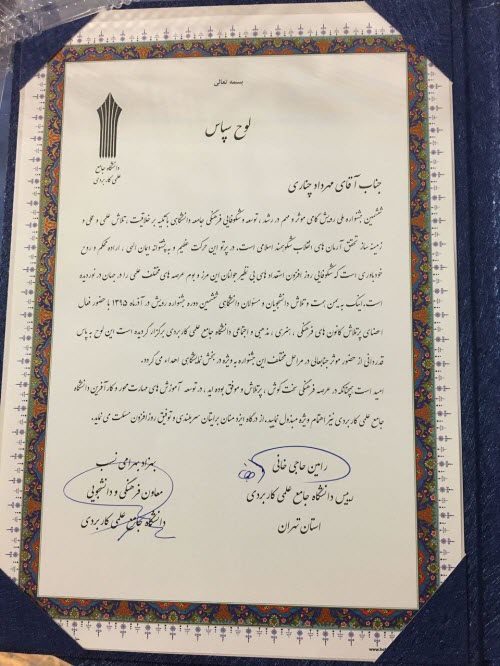 بسمه تعالی
لوح سپاس
دانشگاه جامع
علمی کاربردی
جناب آقای مهرداد چناری
ششمین جشنواره ملی رویش گامی موثر و مهم در رشد، توسعه و شکوفایی فرهنگی جامعه دانشگاهی با تکیه بر خلاقیت، تلاش علمی و عملی و
زمینه ساز تحقق آرمان های انقلاب شکوهمند اسلامی است، در پرتو این حرکت عظیم و به پشتوانه ایمان الهی، اراده محکم و روح
خودباوری است که شکوفایی روز افزون استعداد های بی نظیر جوانان این مرز و بوم عرصه های مختلف علمی را در جهان در نوردیده
است. اینک به یمن همت و تلاش دانشجویان و مسئولان دانشگاهی ششمین دوره جشنواره رویش در آذرماه ۱۳۹۵ با حضور فعال
اعضای پرتلاش کانون های فرهنگی، هنری، مذهبی و اجتماعی دانشگاه جامع علمی کاربردی برگزار گردیده است این لوح به پاس
قدردانی از حضور موثر جنابعالی در مراحل مختلف این جشنواره به ویژه در بخش نمایشگاهی اهداء می گردد.
امید است همچنانکه در عرصه فرهنگی سخت کوش، پرتلاش و موفق بوده اید، در توسعه آموزش های مهارت محور و کارآفرین دانشگاه
جامع علمی کاربردی نیز اهتمام ویژه مبذول نمایید. از درگاه ایزد منان برایتان سربلندی و توفیق روز افزون مسئلت می نماید.
رامین حاجی خانی
رییس دانشگاه جامع علمی کاربردی
استان تهران
بهزاد بهرامی نسب
معاون فرهنگی و دانشجویی
دانشگاه جامع علمی کاربردی